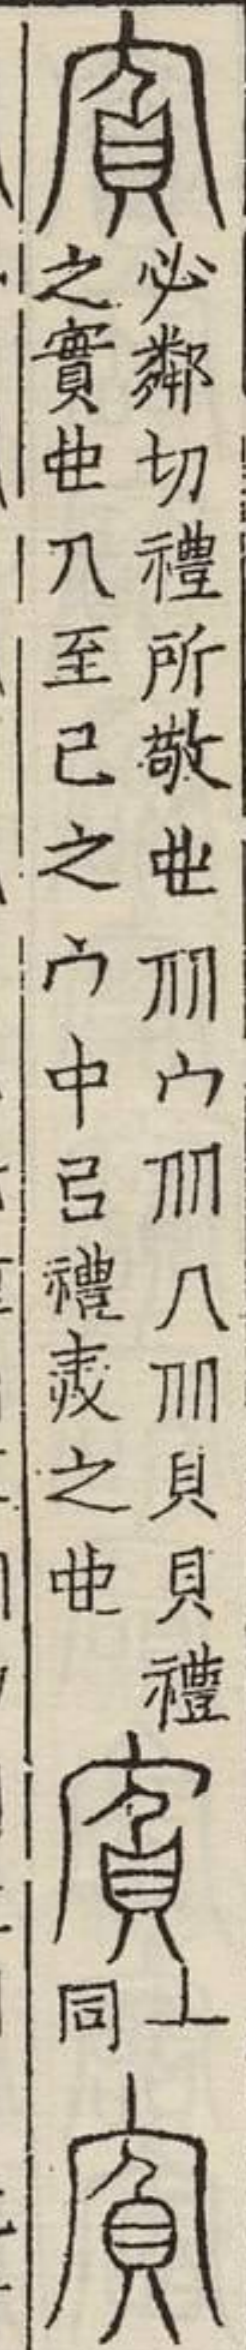 賓
必鄰切禮所敬也从宀从人从貝貝禮
之實也人至己之宀中㠯禮之也
賓
上
同
賓